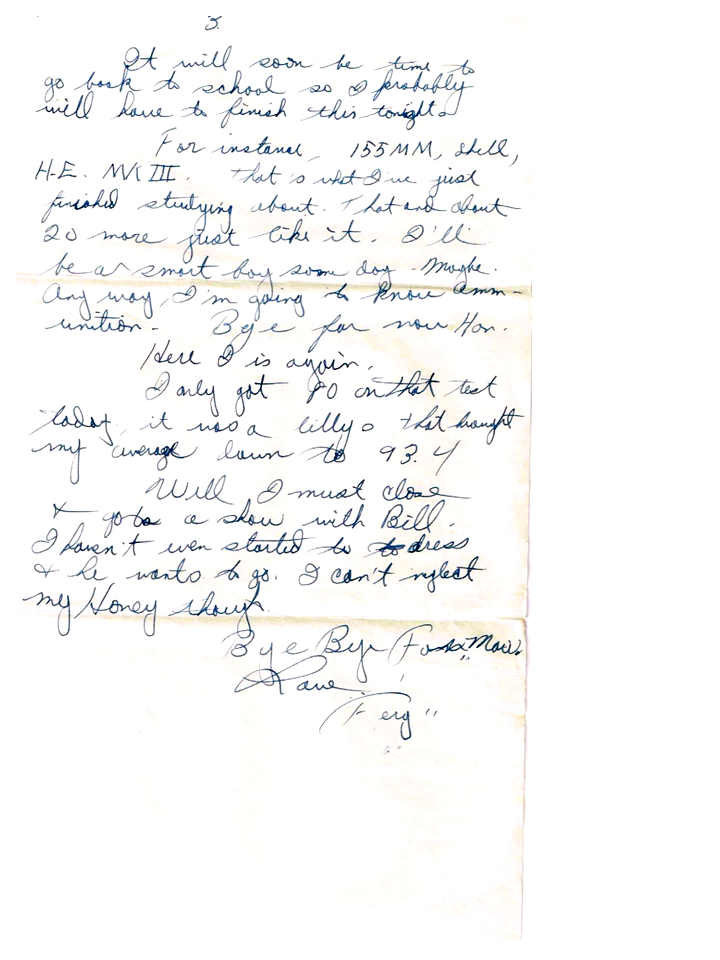 3.
It will soon be time to
go back to school so I probably
will have to finish this tonight.
For instance, 155MM, Shell,
H.E. MK III. That's what I've just
finished studying about. That and about
20 more just like it. I'll
be a smart boy some day. Maybe.
Any way, I'm going to know amm-
unition. Bye for now Hon.
Here I is again.
I only got 80 on that test
today, it was a lilly. That brought
my average down to 93.4
Well I must close
& go to a show with Bill.
I haven't even started to dress
& he wants to go. I can't neglect
my Honey though.
Bye Bye For Now.
"Ferg"